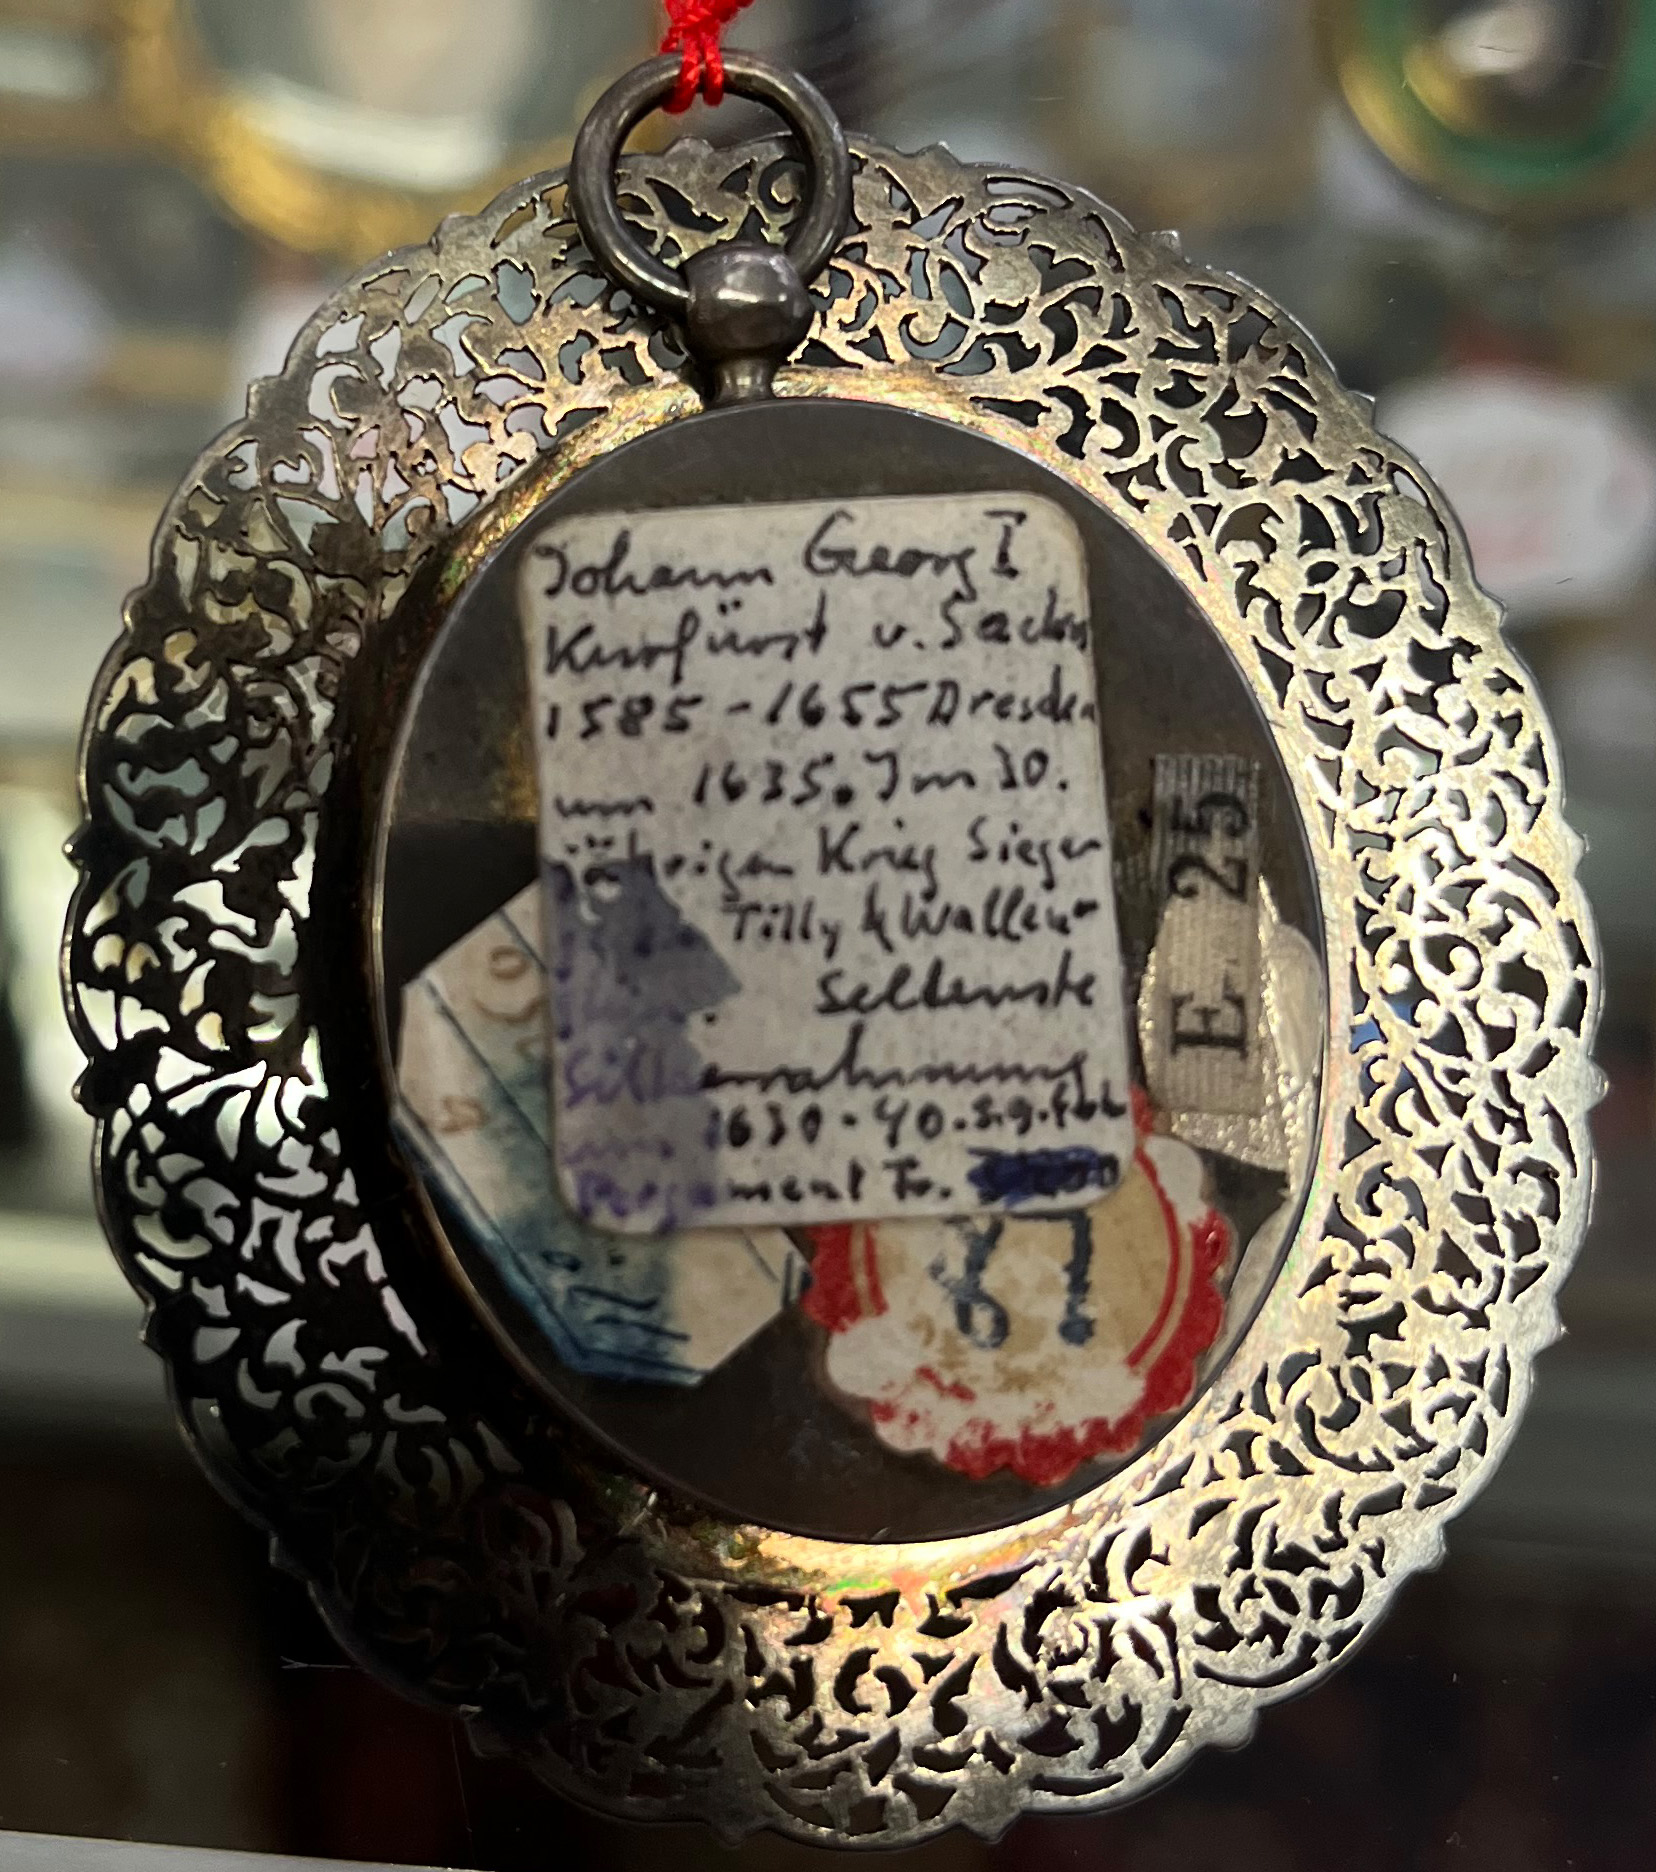 Johann Georg I
Kurfürst v. Sachsen
1585-1655 Dresden
um 1635. Im 30.
jährigen Krieg Sieger
Tilly & Wallen-
Seltenste
Silberrahmung
1630-40. Sig. fol
Pergament Fr.
E 25
87